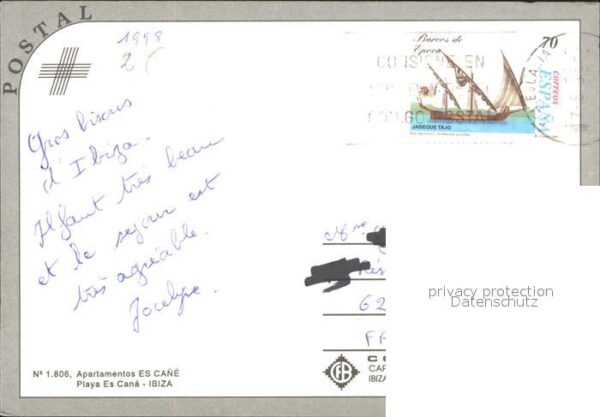 POSTAL
1998
2 €
Barcos de
Epoca
70
correos
ESPAÑA
CONSIGNE EN
JABEQUE TAJO
Gros bisous
d'Ibiza.
Il faut très beau
et le sejour est
très agréable.
Jocelyne.
Mme
Rés
62
FR
privacy protection
Datenschutz
Nº 1.806, Apartamentos ES CAÑÉ
Playa Es Caná - IBIZA
CAR
IBIZA